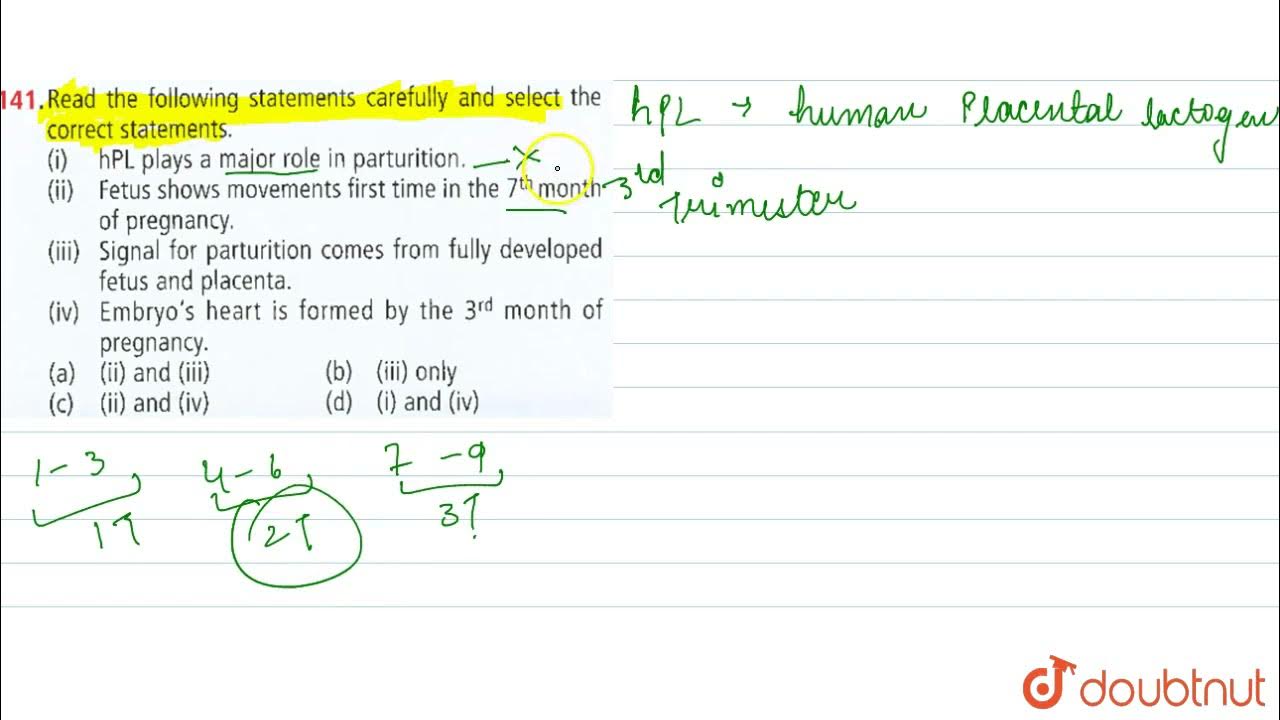 141. Read the following statements carefully and select the
correct statements.
(i) hPL plays a major role in parturition.
(ii) Fetus shows movements first time in the 7th month
of pregnancy.
(iii) Signal for parturition comes from fully developed
fetus and placenta.
(iv) Embryo's heart is formed by the 3rd month of
pregnancy.
(a) (ii) and (iii) (b) (iii) only
(c) (ii) and (iv) (d) (i) and (iv)
hPL → human Placental lactogen
3rd
Trimester
1 - 3 4 - 6 7 - 9
1T 2T 3T
doubtnut